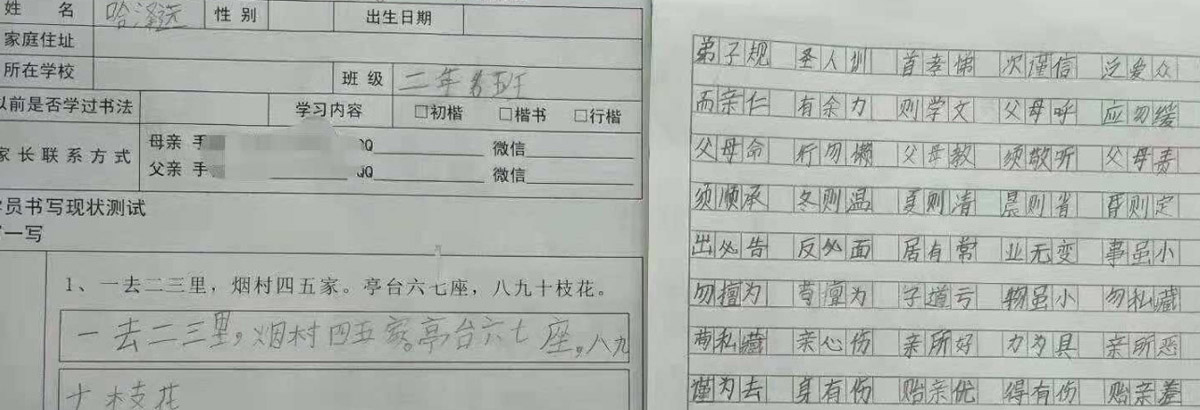 姓 名 哈泽远 性 别 出生日期
家庭住址
所在学校 班 级 二年 班
以前是否学过书法 学习内容 □初楷 □楷书 □行楷
家 长 联 系 方 式 母亲 手 QQ 微信
父亲 手 QQ 微信
学员书写现状测试
写一写
1、一去二三里，烟村四五家。亭台六七座，八九十枝花。
一去二三里，烟村四五家。亭台六七座，八九
十枝花
弟子规 圣人训 首孝悌 次谨信 泛爱众
而亲仁 有余力 则学文 父母呼 应勿缓
父母命 行勿懒 父母教 须敬听 父母责
须顺承 冬则温 夏则清 晨则省 昏则定
出必告 反必面 居有常 业无变 事虽小
勿擅为 苟擅为 子道亏 物虽小 勿私藏
苟私藏 亲心伤 亲所好 力为具 亲所恶
谨为去 身有伤 贻亲优 得有伤 贻亲羞